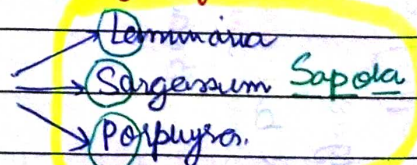 Laminaria
Sargassum Sapola
Porphyra.